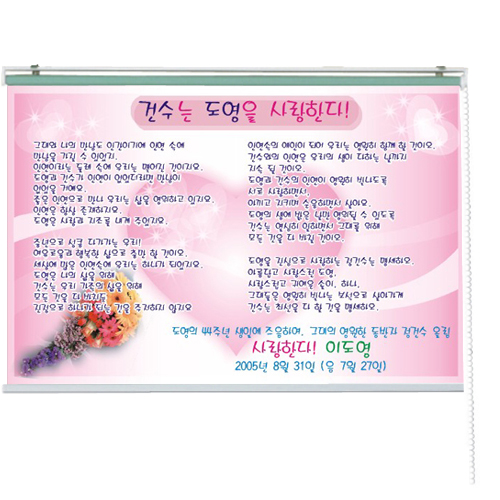 건수는 도영을 사랑한다!
그대와 나의 만남도 인간이기에 인연 속에
만남을 가질 수 있었지.
인연이라는 둘레 속에 우리는 맺어진 것이지요.
도영과 건수가 인연이 있었다라면 만남이
있었을 거예요.
좋은 인연으로 만나 우리는 삶을 영위하고 있지요.
인연을 항상 존재하지요.
도영은 사랑과 기쁨를 내게 주었지요.
중년으로 다가가는 우리!
여유로움과 행복한 삶으로 주말 될 것이오.
세상에 맺은 인연속에 우리는 하나가 되었지요.
도영는 나의 삶을 위해
건수는 우리 가족의 삶을 위해
모든 것을 다 바치는
진정으로 하나가 되는 것을 추구하지 않지요
인연속의 여인이 되어 우리는 영원히 함께 할 것이오.
건수와의 인연은 우리의 생이 다하는 날까지
지속 될 것이오.
도영과 건수의 인연이 영원히 빛나도록
서로 사랑하면서,
아끼고 지키며 소중하면서 살아요.
도영의 생에 밝은 날만 영위될 수 있도록
건수는 열심히 일하면서 그대를 위해
모든 것을 다 바칠 것이오.
도영을 진심으로 사랑하는 김건수는 맹세하오.
아름답고 사랑스런 도영,
사랑스럽고 귀여운 송이, 하나,
그대들을 영원히 빛나는 보석으로 살아가게
건수는 최선을 다 할 것을 맹세하오.
도영의 44주년 생일에 즈음하여, 그대의 영원한 동반자 김건수 올림
사랑한다! 이도영
2005년 8월 31일 (음 7월 27일)